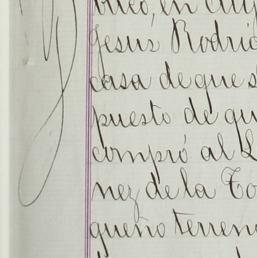 buco, en cuy
Jesus Rodrig
casa de que s
puesto de qu
compró al L
nez de la To
queño terreno